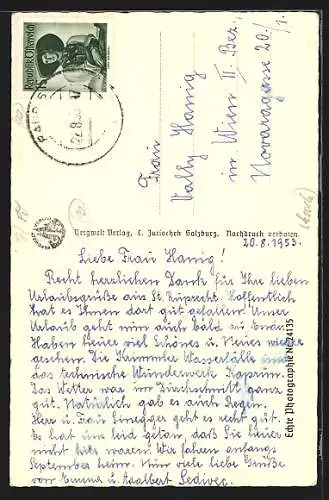 REPUBLIK ÖSTERREICH
Frau
Vally Hanig
in Wien II. Bez.
Novaragasse 20/
Bergwelt Verlag, C. Jurischek Salzburg. Nachdruck verboten.
20.8.1953.
Liebe Frau Hanig!
Recht herzlichen Dank für Ihre lieben
Urlaubsgrüße aus St. Ruprecht. Hoffentlich
hat es Ihnen dort gut gefallen. Unser
Urlaub geht nun auch bald zu Ende.
Haben heuer viel Schönes u. Neues wieder
gesehen. Die Krimmler Wasserfälle und
das technische Wunderwerk Kaprun.
Das Wetter war im Durchschnitt ganz
gut. Natürlich gab es auch Regen.
Herr u. Frau Sinegger geht es recht gut.
Es hat uns leid getan, daß Sie heuer
nicht hier waren. Wir fahren anfangs
September heim. Nun viele liebe Grüße
von Emma u. Adalbert Sedivec.
Echte Photographie Nr. 24135